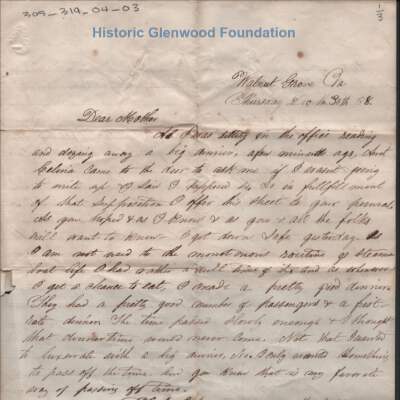 309_319_04_03
1/3
Historic Glenwood Foundation
Walnut Grove
Thursday 30th 58.
Dear Mother
As I was sitting in the office reading
and dozing away a big dinner, a few minutes ago, Aunt
came to the door to ask me if I wasnt going
to write up & I said I supposed so. So in fullfillment
of that supposition I offer this sheet to your perusal,
you hoped & as I know & as you & all the folks
will want to know I got down safe yesterday. As
I am not used to the monotonous routine of steam
boat life I had rather a dull time of it and as whenever
I get a chance to eat, I made a pretty good dinner.
They had a pretty good number of passengers & a first
rate dinner. The time passed slowly enough & I thought
that dinner time would never come. Not that I wanted
to with a big dinner, I only wanted something
to pass off the time. but you know that is my favorite
way of passing off time.